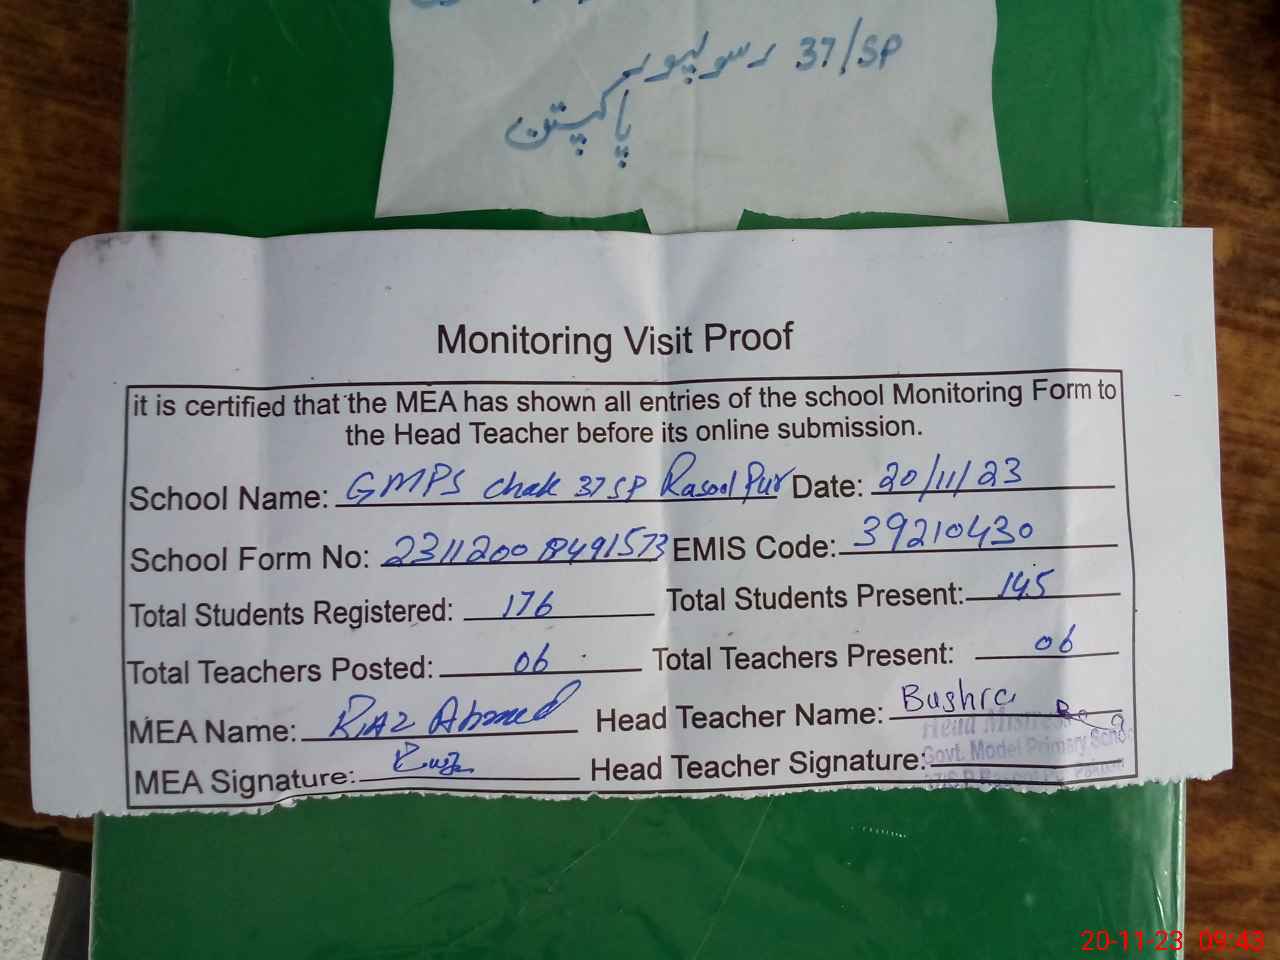 37/SP رسولپور
پاکپتن
Monitoring Visit Proof
it is certified that the MEA has shown all entries of the school Monitoring Form to
the Head Teacher before its online submission.
School Name: GMPS Chak 37 SP Rasool Pur Date: 20/11/23
School Form No: EMIS Code: 39210430
Total Students Registered: 176 Total Students Present: 145
Total Teachers Posted: 06 Total Teachers Present: 06
MEA Name: Riaz Ahmed Head Teacher Name: Bushra
MEA Signature: Head Teacher Signature:
Head Mistress
Govt. Model Primary School
20-11-23 09:43